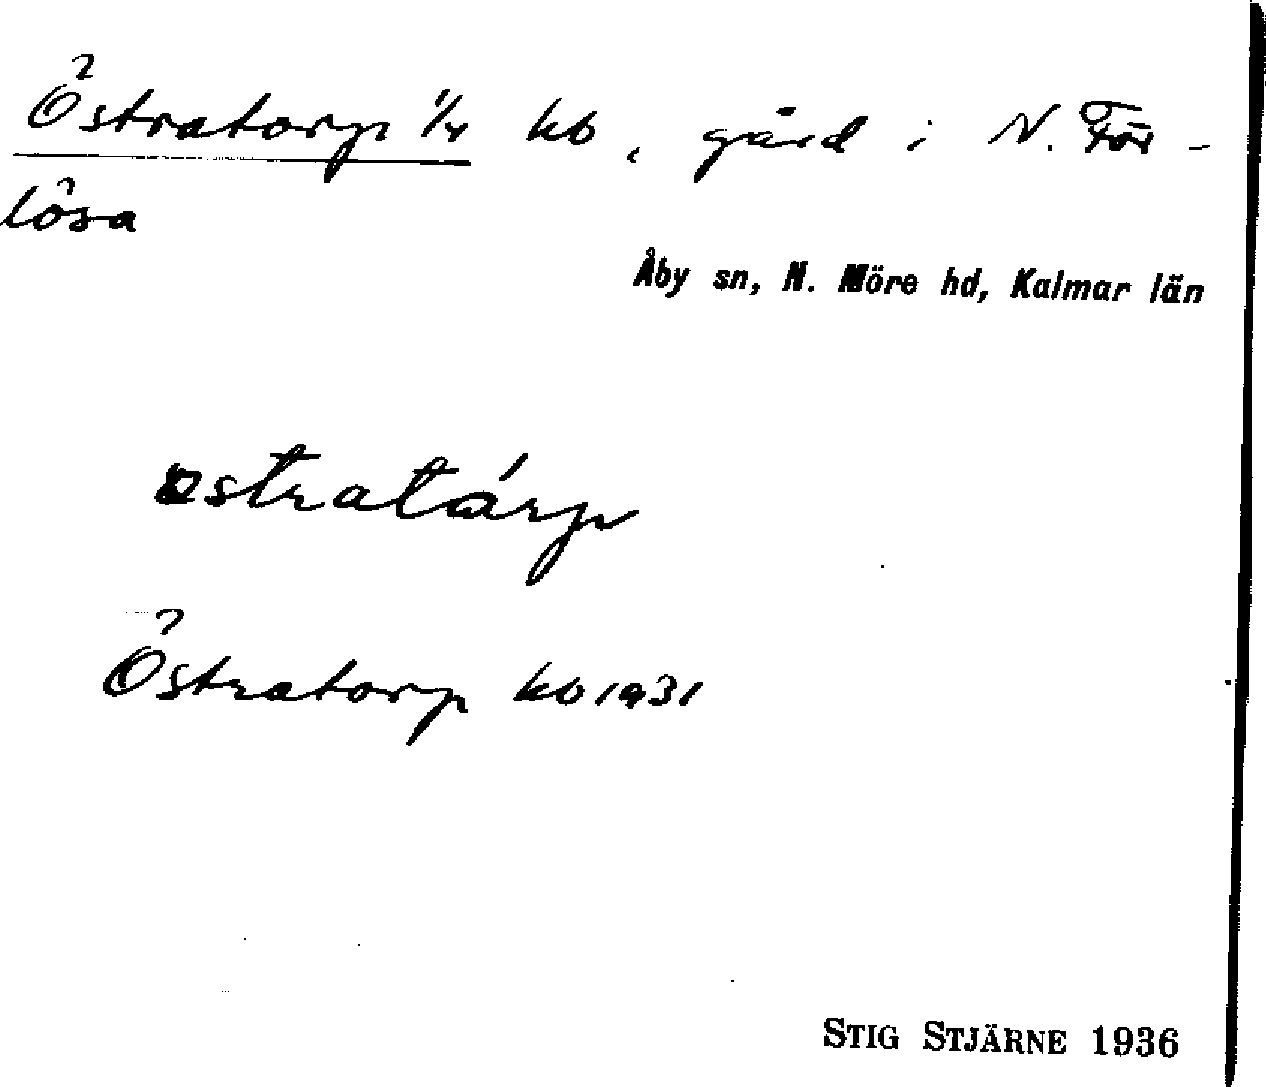 Östratorp 1/4 kb, gård i N. För-
lösa
Åby sn, N. Möre hd, Kalmar län
östratårp
Östratorp kb 1931
STIG STJÄRNE 1936